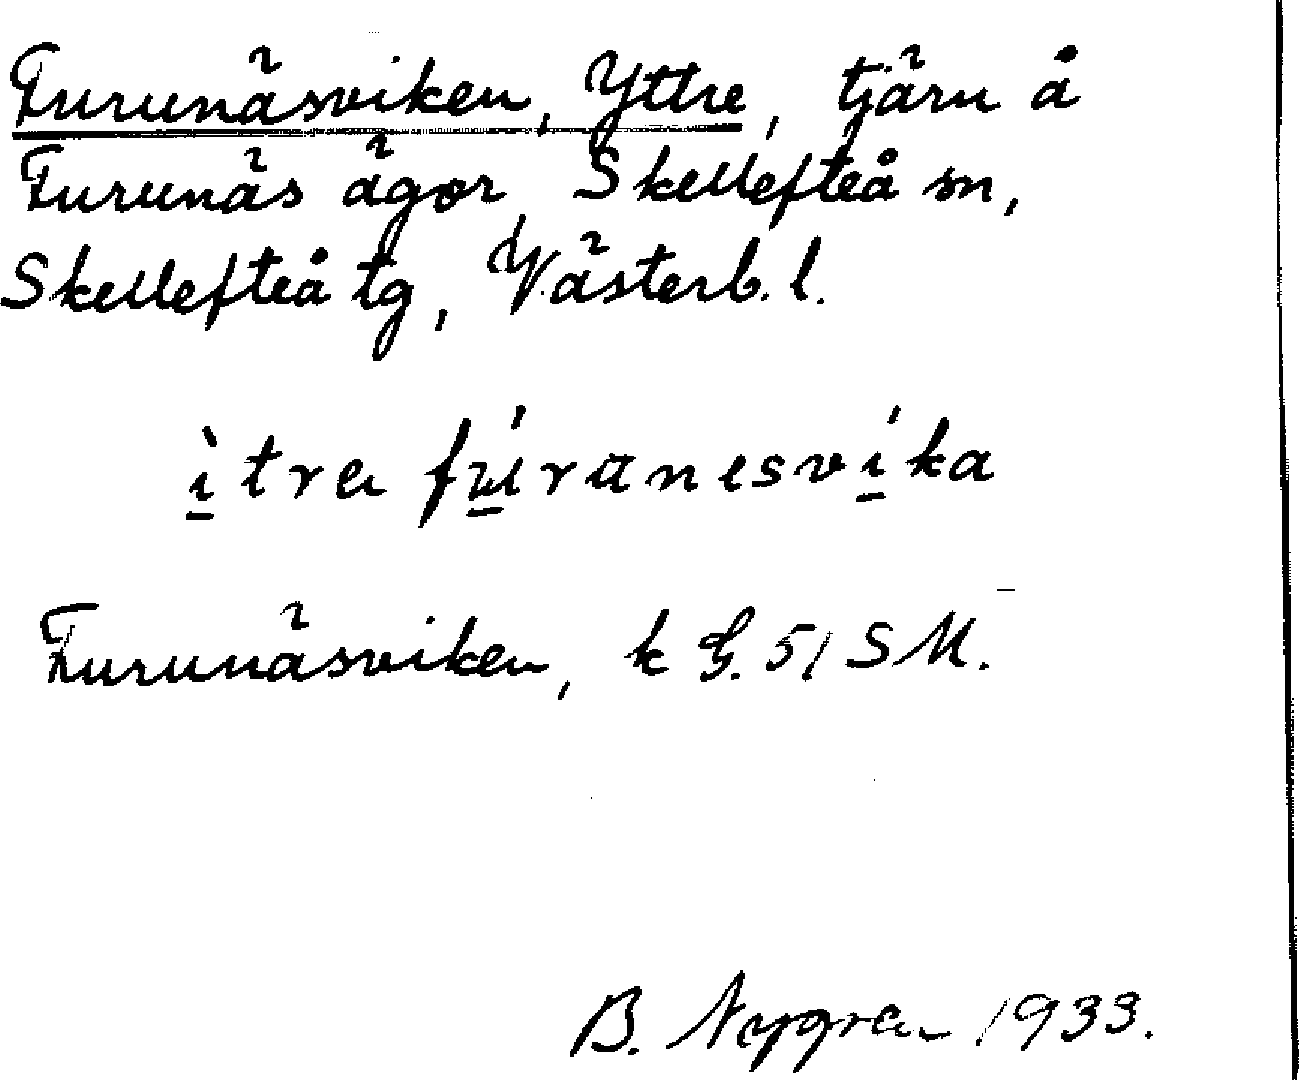 Furunäsviken, Yttre, tjärn å
Furunäs ägor, Skellefteå sn,
Skellefteå tg, Västerb. l.
ìtra fúranesvíka
Furunäsviken, k G. 51 SM.
B. Nygren 1933.